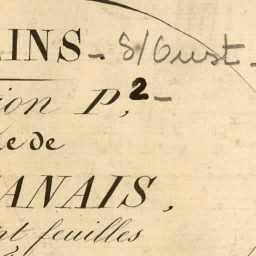 AINS - S/Oust -
ion P, 2 -
le de
ANAIS,
nt feuilles